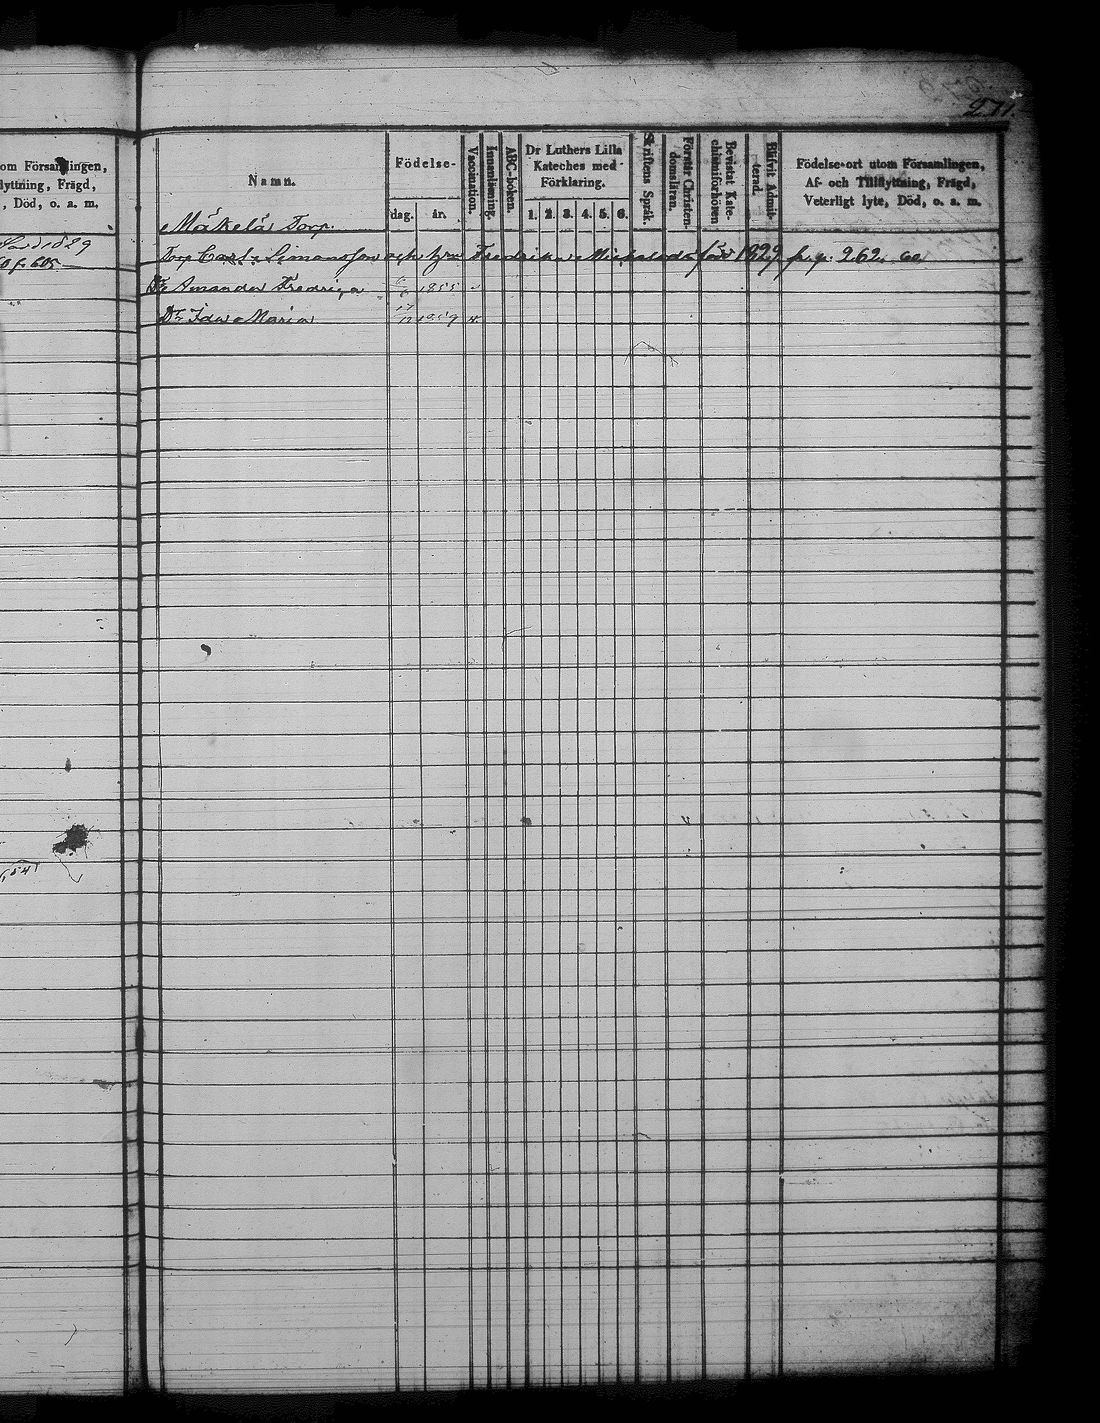 271.
om Församlingen,
lyttning, Frägd,
, Död, o. a. m.
1829
of. 605
Namn.
Födelse-
dag. år.
Vaccination.
Innanläsning.
ABC-boken.
Dr Luthers Lilla
Kateches med
Förklaring.
1. 2. 3. 4. 5. 6.
Skriftens Språk.
Förstår Christen-
domsläran.
Bevistat Kate-
chismiförhören
Blifvit Admit-
terad.
Födelse-ort utom Församlingen,
Af- och Tillflyttning, Frägd,
Veterligt lyte, Död, o. a. m.
Mäkelä Torp.
Torp Carl Simonsson och hru Fredrika Michelsdr född 1829 p. g. 262.
Dr Amanda Fredrica 1855
Dr Ida Maria 1859